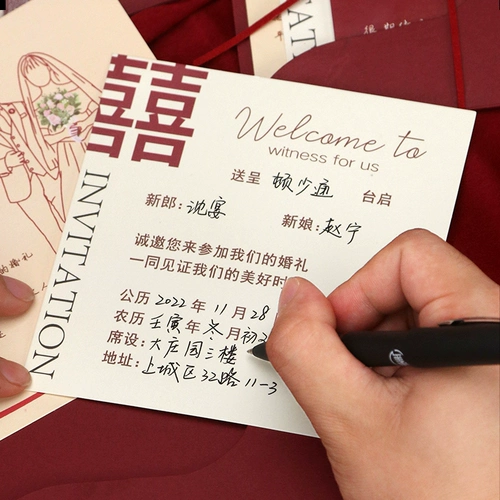 囍
INVITATION
Welcome to
witness for us
送呈 顾少通 台启
新郎:沈宴 新娘:赵宁
诚邀您来参加我们的婚礼
一同见证我们的美好时
公历 2022 年 11 月 28
农历 壬寅 年 冬 月 初
席设: 大庄园三楼
地址: 上城区32路11-3
的婚礼